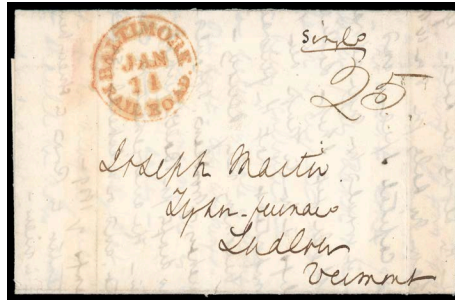 BALTIMORE
JAN
11
RAIL ROAD.
single
25
Joseph Martin
Tyson-furnace
Ludlow
Vermont